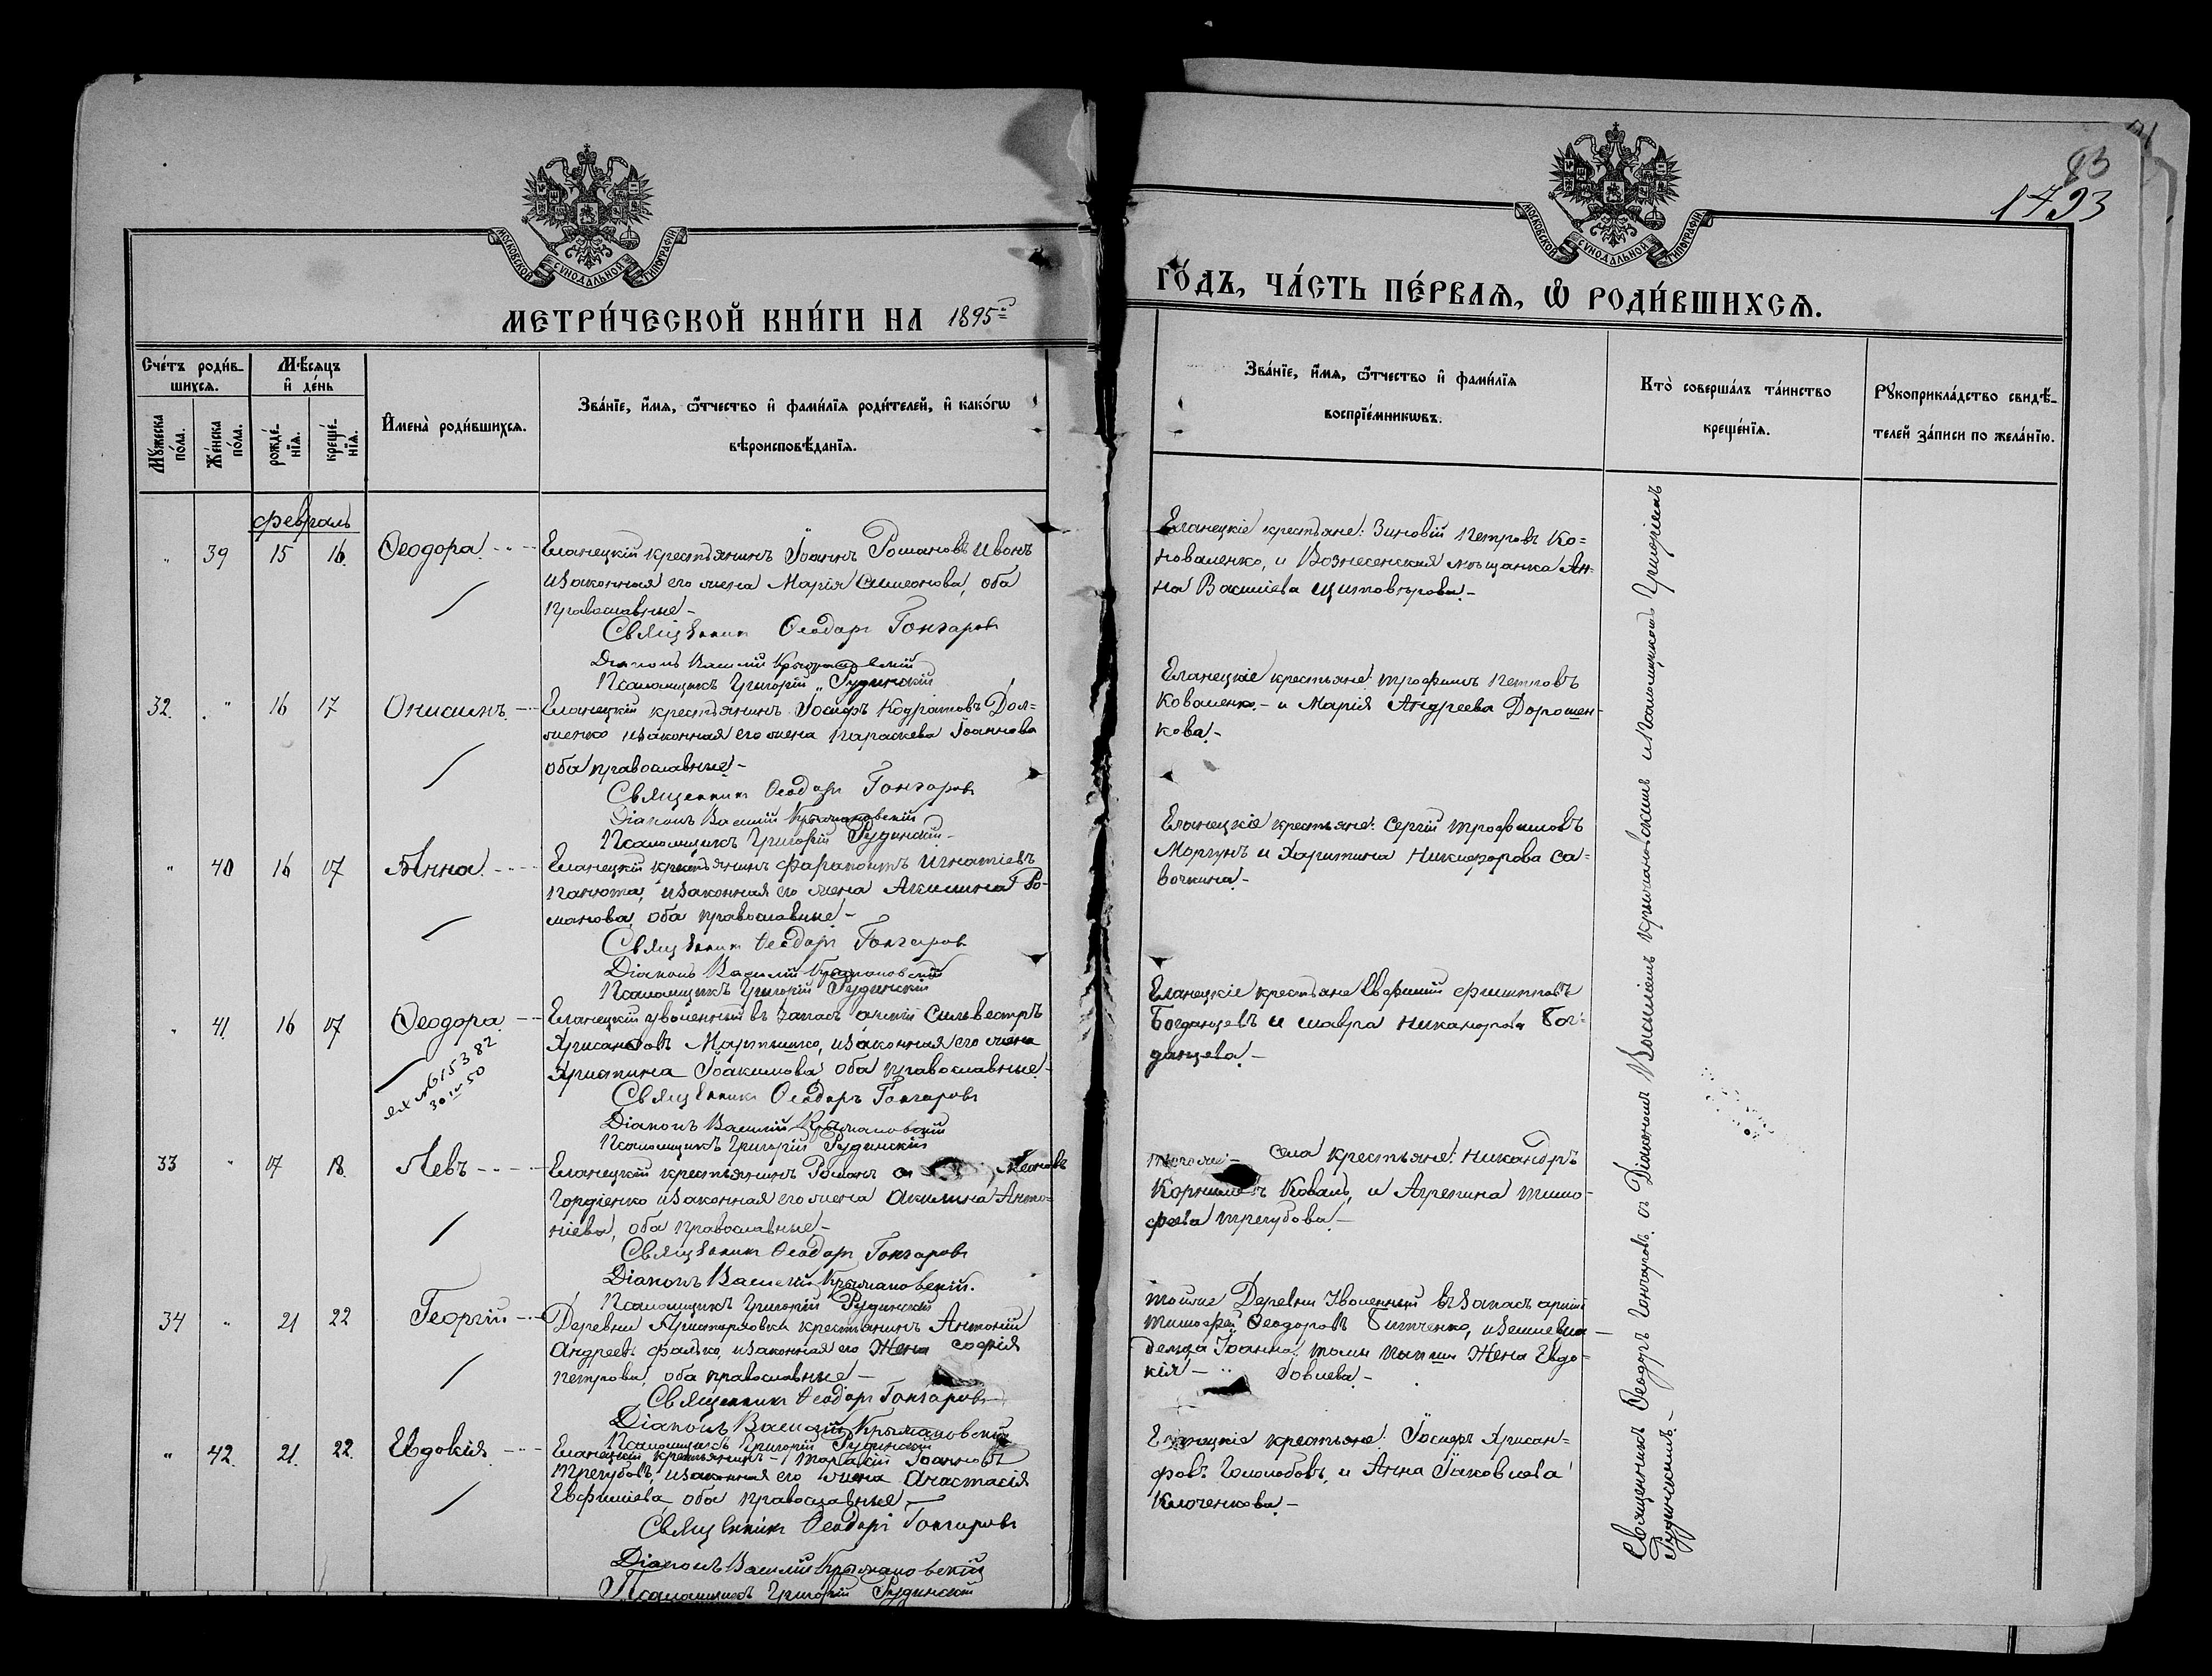 93
1793
МОСКОВСКОЙ СѴНОДАЛЬНОЙ ТИПОГРАФІИ
МОСКОВСКОЙ СѴНОДАЛЬНОЙ ТИПОГРАФІИ
МЕТРИ́ЧЕСКОЙ КНИ́ГИ НА 1895й
ГО́ДЪ, ЧА́СТЬ ПЕ́РВАѦ, Ѡ҆ РОДИ́ВШИХСѦ.
Сче́тъ роди́в-
шихсѧ.
Мѣ́сѧцъ
и҆ де́нь
Мꙋ́жеска по́ла.
Же́нска по́ла.
рожде́-
нїѧ.
креще́-
нїѧ.
И҆мена̀ роди́вшихсѧ.
Зва́нїе, и҆́мѧ, ѻ҆́тчество и҆ фами́лїѧ роди́телей, и҆ како́гѡ
вѣроисповѣ́данїѧ.
Зва́нїе, и҆́мѧ, ѻ҆́тчество и҆ фами́лїѧ
воспрїе́мникѡвъ.
Кто̀ соверша́лъ та́инство
креще́нїѧ.
Рꙋкоприкла́дство свидѣ́-
телей за́писи по жела́нїю.
февраль
" 39 15 16. Ѳеодора. Еланецкій крестьянинъ Іоаннъ Романовъ Ивонъ
и законная его жена Марія Симеонова, оба
православные-
Священник Ѳеодоръ Гончаровъ
Діаконъ Василій Крыжановскій
Псаломщикъ Григорій Рудинскій
Еланецкіе крестьяне: Зиновій Петровъ Ко=
новаленко, и Вознесенская мѣщанка Ан-
на Васильева
32. " 16 17 Онисимъ. Еланецкій крестьянинъ Іосифъ Кодратовъ Дол=
женко и законная его жена Параскева Іоаннова
оба православные-
Священник Ѳеодоръ Гончаровъ
Діаконъ Василій Крыжановскій
Псаломщикъ Григорій Рудинскій
Еланецкіе крестьяне: Трофимъ Петровъ
Коваленко- и Марія Андреева Дорошен-
кова.-
" 40 16 17 Анна. Еланецкій крестьянинъ Фарапонтъ Игнатіевъ
Панюта, и законная его жена Акилина Ро-
манова, оба православные-
Священник Ѳеодоръ Гончаровъ
Діаконъ Василій Крыжановскій
Псаломщикъ Григорій Рудинскій
Еланецкіе крестьяне: Сергій Трофимовъ
Моргунъ и Харитина Никифорова Са=
вочкина.-
" 41. 16 17 Ѳеодора Еланецкій уволенный въ запасъ арміи Сильвестръ
Хрисанфовъ Мартышко, и законная его жена
Христина Іоакимова оба православные.
Священник Ѳеодоръ Гончаровъ
Діаконъ Василій Крыжановскій
Псаломщикъ Григорій Рудинскій
615382
30 IV 50
Еланецкіе крестьяне Евфимій Филипповъ
Богданцевъ и Мавра Никанорова Бог-
данцева-
33 " 17 18. Левъ Еланецкій крестьянинъ Романъ
Гордіенко и законная его жена Акилина Анто-
ніева, оба православные-
Священник Ѳеодоръ Гончаровъ
Діаконъ Василій Крыжановскій.
Псаломщикъ Григорій Рудинскій
села крестьяне: Никандръ
Корниліевъ Коваль, и Агрепина Тимо-
феева Трегубова.-
34 " 21 22 Георгій Деревни Христофоровки крестьянинъ Антоній
Андреевъ Фалько, и законная его жена Софія
Петрова, оба православные-
Священник Ѳеодоръ Гончаровъ
Діаконъ Василій Крыжановскій
Псаломщикъ Григорій Рудинскій
Той же Деревни уволенный въ запасъ арміи
Тимофей Ѳеодоровъ Битченко, и землевла-
дельца Іоанна жена Евдо-
кія-
" 42. 21. 22. Евдокія Еланецкій крестьянинъ- Тарасій Іоанновъ
Трегубовъ, и законная его жена Анастасія
Евфиміева, оба православные-
Священник Ѳеодоръ Гончаровъ
Діаконъ Василій Крыжановскій
Псаломщикъ Григорій Рудинскій
Еланецкіе крестьяне: Іосифъ Хрисан=
фовъ Гололобовъ, и Анна Іаковлева
Клоченкова-
Священникъ Ѳеодоръ Гончаровъ съ Діакономъ Василіемъ Крыжановскимъ и Псаломщикомъ Григоріемъ
Рудинскимъ.-